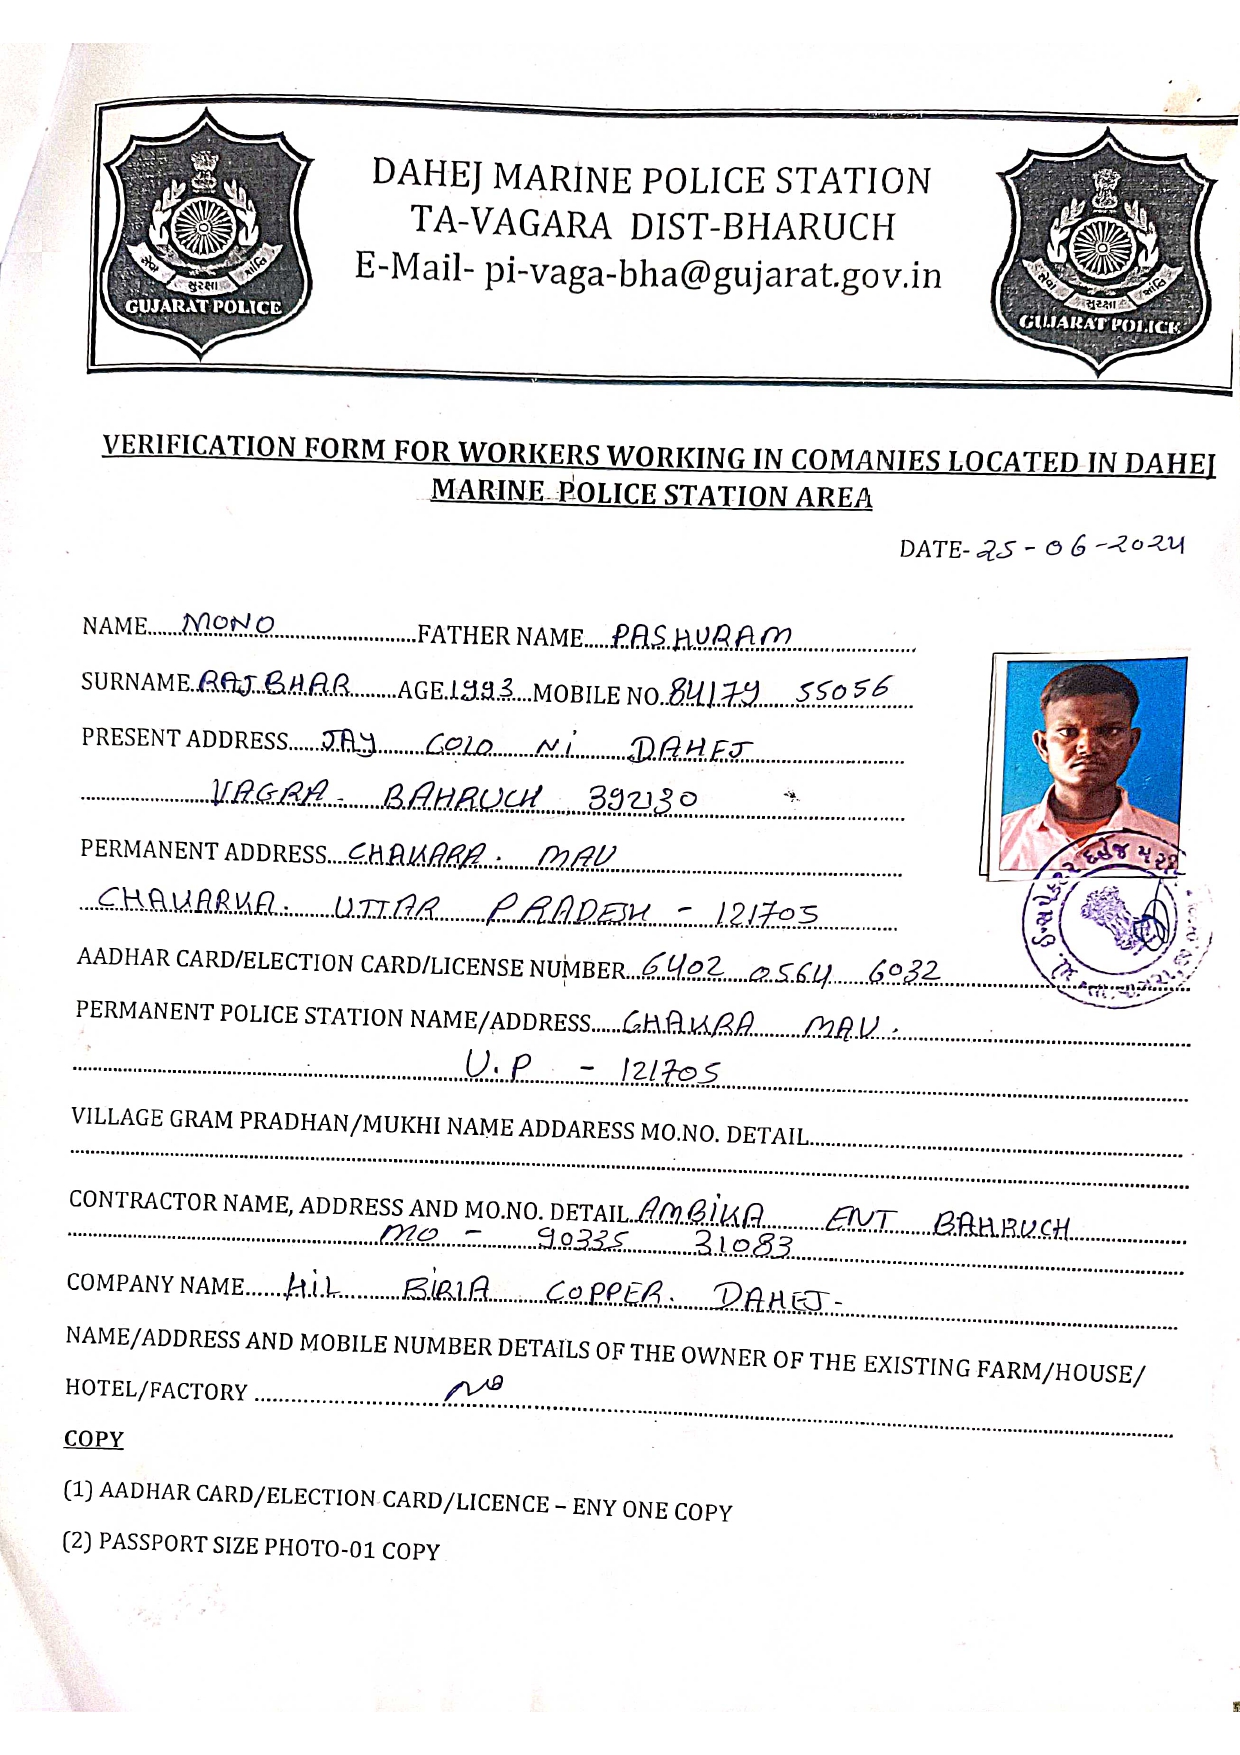 સેવા સુરક્ષા શાંતિ
GUJARAT POLICE
DAHEJ MARINE POLICE STATION
TA-VAGARA DIST-BHARUCH
E-Mail- pi-vaga-bha@gujarat.gov.in
સેવા સુરક્ષા શાંતિ
GUJARAT POLICE
VERIFICATION FORM FOR WORKERS WORKING IN COMANIES LOCATED IN DAHEJ
MARINE POLICE STATION AREA
DATE- 25-06-2024
NAME......MONO......FATHER NAME....PASHURAM
SURNAME..RAJBHAR......AGE.1993...MOBILE NO.84179 55056
PRESENT ADDRESS.....JAY COLO Ni DAHEJ
VAGRA- BAHRUCH 392130
PERMANENT ADDRESS...CHAKARA. MAU
CHAKARKA. UTTAR PRADESH - 121705
AADHAR CARD/ELECTION CARD/LICENSE NUMBER..6402 0564 6032
PERMANENT POLICE STATION NAME/ADDRESS.....CHAKRA MAU.
U.P - 121705
VILLAGE GRAM PRADHAN/MUKHI NAME ADDARESS MO.NO. DETAIL
CONTRACTOR NAME, ADDRESS AND MO.NO. DETAIL.AMBiKA ENT BAHRUCH
MO - 90335 31083
COMPANY NAME......HiL BiRlA COPPER. DAHEJ-
NAME/ADDRESS AND MOBILE NUMBER DETAILS OF THE OWNER OF THE EXISTING FARM/HOUSE/
HOTEL/FACTORY ......NO
COPY
(1) AADHAR CARD/ELECTION CARD/LICENCE – ENY ONE COPY
(2) PASSPORT SIZE PHOTO-01 COPY